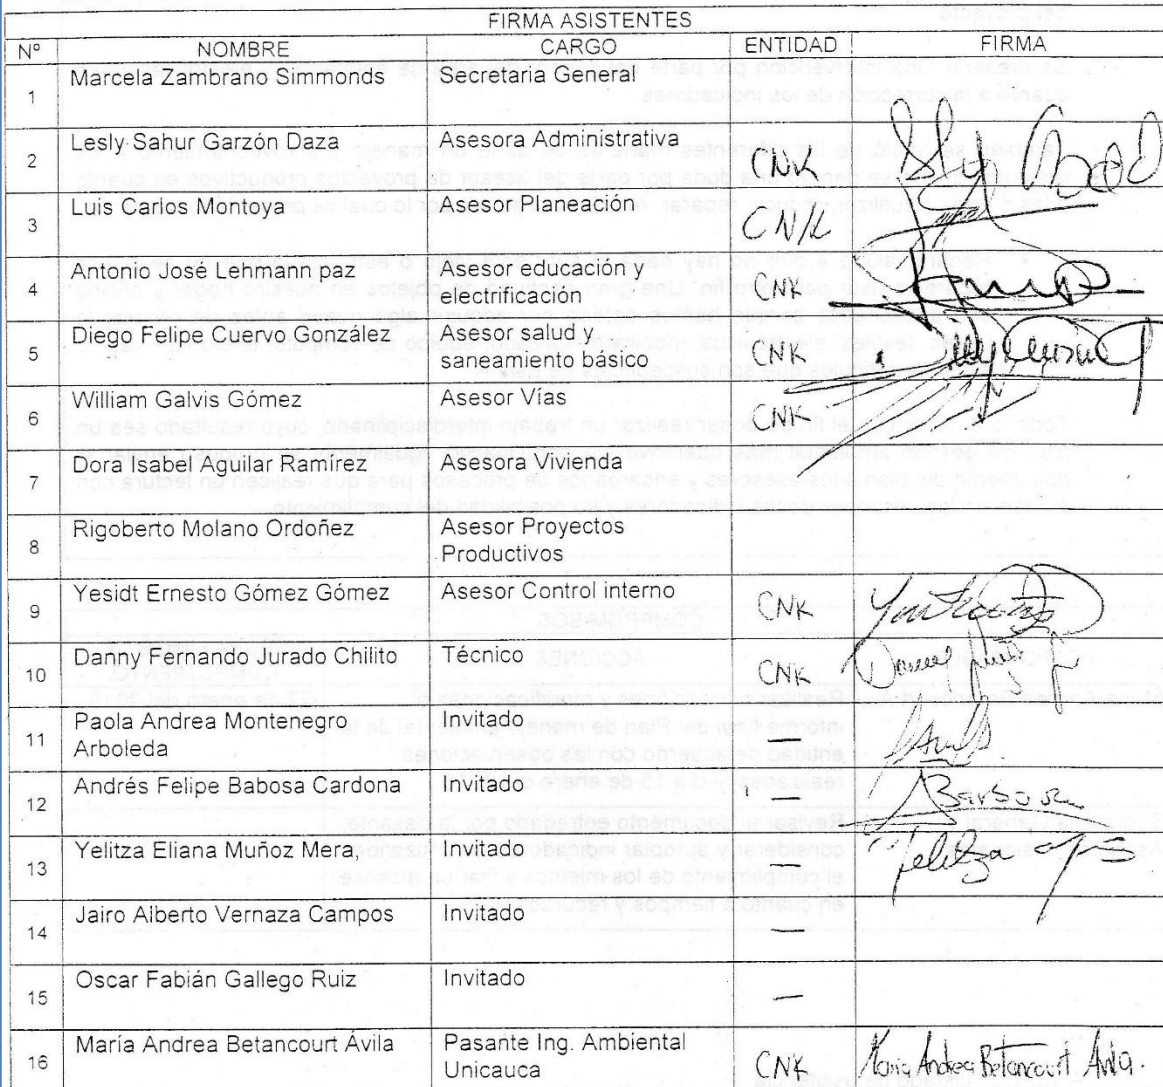 FIRMA ASISTENTES
Nº NOMBRE CARGO ENTIDAD FIRMA
1 Marcela Zambrano Simmonds Secretaria General
2 Lesly Sahur Garzón Daza Asesora Administrativa CNK
3 Luis Carlos Montoya Asesor Planeación CN/K
4 Antonio José Lehmann paz Asesor educación y
electrificación CNK
5 Diego Felipe Cuervo González Asesor salud y
saneamiento básico CNK
6 William Galvis Gómez Asesor Vías CNK
7 Dora Isabel Aguilar Ramírez Asesora Vivienda
8 Rigoberto Molano Ordoñez Asesor Proyectos
Productivos
9 Yesidt Ernesto Gómez Gómez Asesor Control interno CNK
10 Danny Fernando Jurado Chilito Técnico CNK
11 Paola Andrea Montenegro
Arboleda Invitado —
12 Andrés Felipe Babosa Cardona Invitado — Barbosa
13 Yelitza Eliana Muñoz Mera, Invitado — Yelitza
14 Jairo Alberto Vernaza Campos Invitado —
15 Oscar Fabián Gallego Ruiz Invitado —
16 María Andrea Betancourt Ávila Pasante Ing. Ambiental
Unicauca CNK Maria Andrea Betancourt Avila.